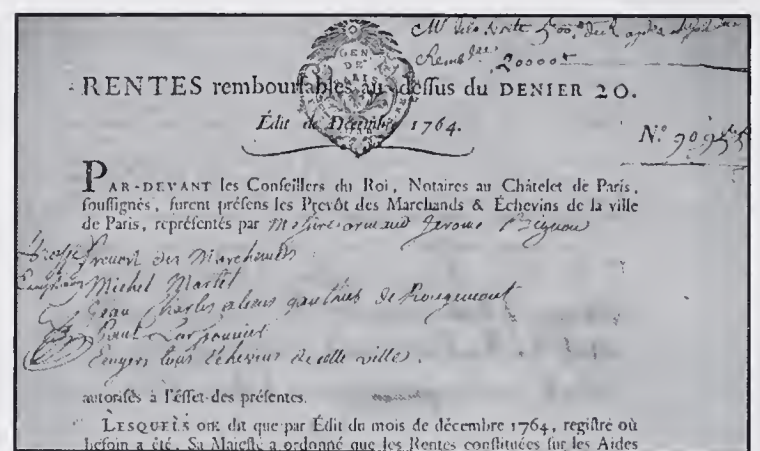 5000
Remb
20000
GEN
DE
PARIS
RENTES rembourſables au deſſus du DENIER 20.
Édit de Décembre 1764.
N.º
PAR-DEVANT les Conſeillers du Roi, Notaires au Châtelet de Paris,
ſouſſignés, furent préſens les Prevôt des Marchands & Échevins de la ville
de Paris, repréſentés par Messire armand Jerome Bignon
Prevost des Marchands
Michel Martel
Jean Charles alexis gauthier de Rougemont
Paul Larsonnier
Ecuyers tous Echevins de cette ville.
autoriſés à l'éffet des préſentes.
LESQUELS ont dit que par Édit du mois de décembre 1764, regiſtré où
beſoin a été, Sa Majeſté a ordonné que les Rentes conſtituées ſur les Aides